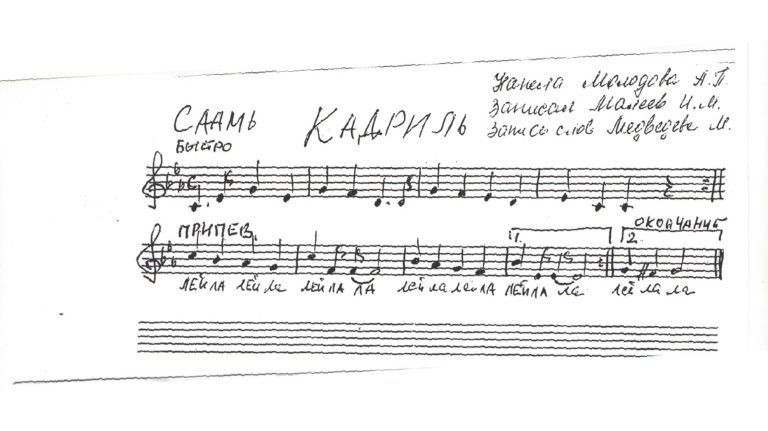 Напела Молодова А.П.
СААМЬ КАДРИЛЬ Записал Малеев И.М.
БЫСТРО Запись слов Медведева М.
ПРИПЕВ. 1. 2. ОКОНЧАНИЕ
ЛЕЙЛА ЛЕЙЛА ЛЕЙЛА ЛА ЛЕЙЛА ЛЕЙЛА ЛЕЙЛА ЛА ЛЕЙ ЛА ЛА